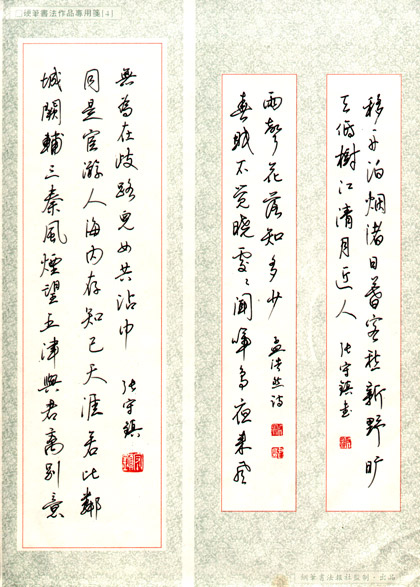 硬筆書法作品專用箋[4]
城闕輔三秦風煙望五津與君离别意
同是宦游人海内存知己天涯若比鄰
無為在歧路兒女共沾巾
张守鎮
春眠不觉晓處〻闻啼鸟夜来风
雨聲花落知多少
孟浩然诗
移舟泊烟渚日暮客愁新野旷
天低樹江清月近人
张守鎮书
钢筆書法报社監制·出品